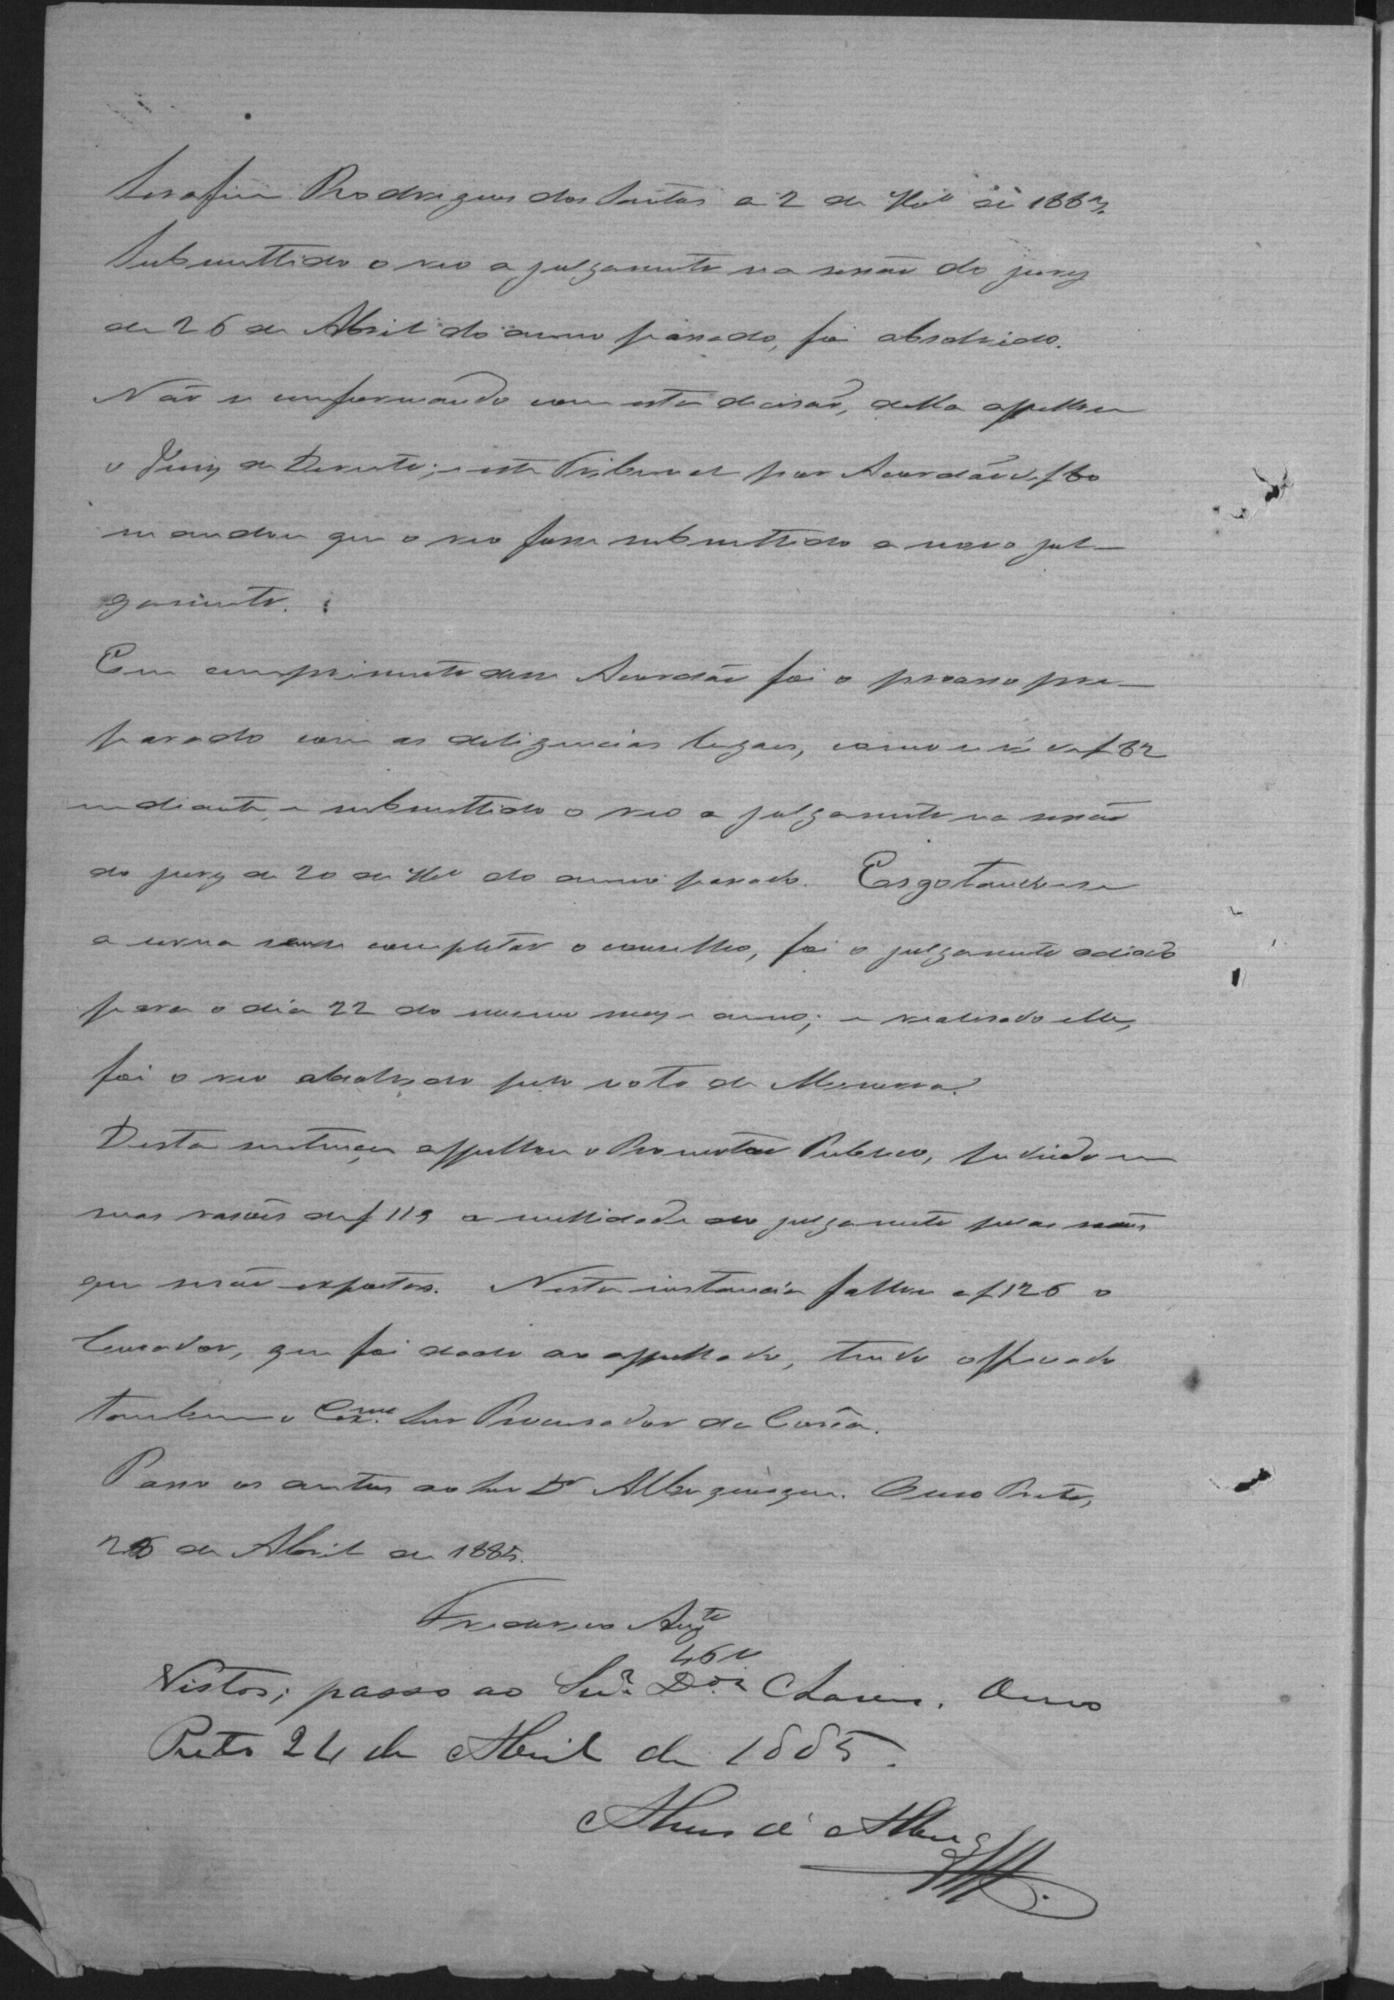 Serafim Rodrigues dos Santos a 2 de de 1883.
Submettido o reo a julgamento na sessão do jury
de 26 de Abril do anno passado, foi absolvido.
Não se conformando com esta decisão, della appellou
o Juiz de Direito; e este Tribunal por Acordão de f 80
mandou que o reo fosse submettido a novo jul-
gamento.
Em cumprimento desse Acordão foi o processo pre-
parado com as diligencias legaes, como se vê de f 82
em diante, e submettido o reo a julgamento na sessão
do jury de 20 de do anno passado. Esgotando-se
a urna sem completar o conselho, foi o julgamento adiado
para o dia 22 do mesmo mez e anno; e realisado elle,
foi o reo absolvido pelo voto de Minerva.
Desta sentença appellou o Promotor Publico, pedindo em
suas rasões de f 119 a nullidade do julgamento pelas rasões
que serão expostas. Nesta instancia fallou a f 126 o
Curador, que foi dado ao appellado, tendo officiado
tambem o Exmo. Snr Procurador da Corôa.
Passo os autos ao Snr Dr Albuquerque. Ouro Preto,
26 de Abril de 1885.
Frederico Augto
Vistos; passo ao Snr. Dor Chaves. Ouro
Preto 24 de Abril de 1885.
Alves de Albuq